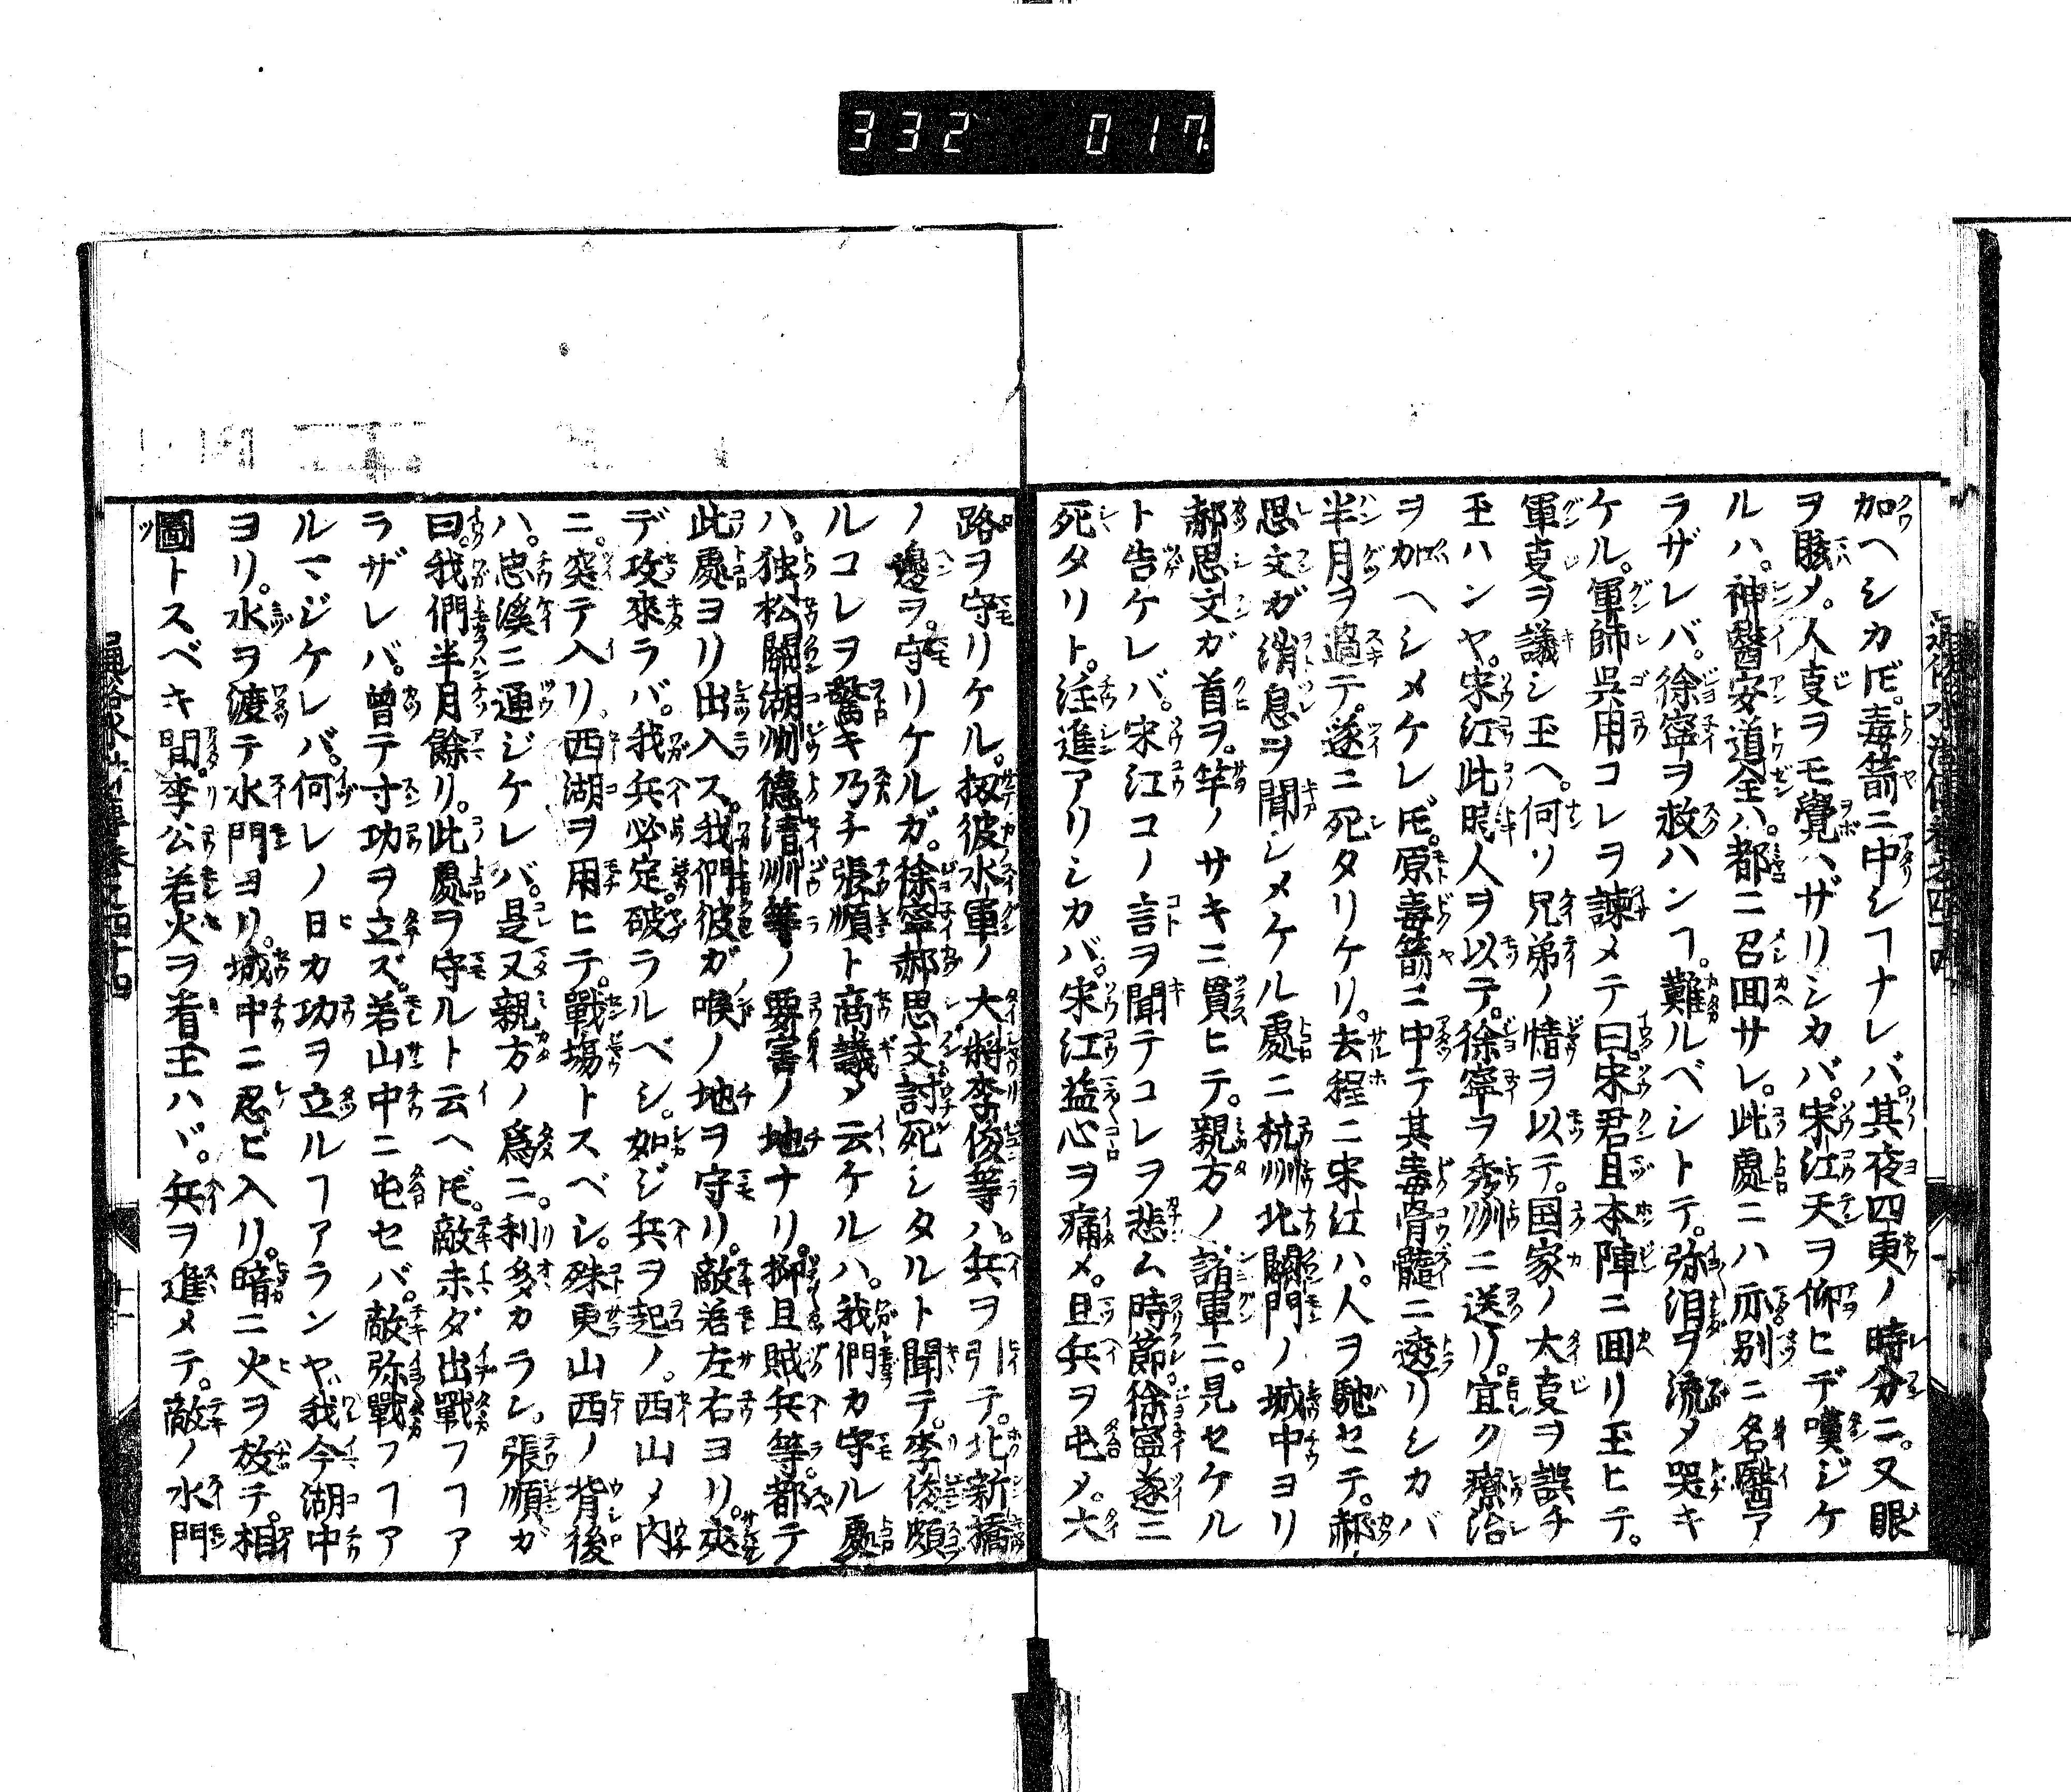 332 017
加ヘシカ𪜈。毒箭ニ中シヿナレバ。其夜四更ノ時分ニ。又眼
ヲ眩メ。人事ヲモ覺ハザリシカバ。宋江天ヲ仰ヒデ嘆ジケ
ルハ。神醫安道全ハ。都ニ召回サレ。此處ニハ亦別ニ名醫ア
ラザレバ。徐寧ヲ救ハンヿ。難ルベシトテ。弥泪ヲ流メ哭キ
ケル。軍師呉用コレヲ諫メテ曰。宋君且本陣ニ回リ玉ヒテ。
軍事ヲ議シ玉ヘ。何ソ兄弟ノ情ヲ以テ。国家ノ大事ヲ誤チ
玉ハンヤ。宋江此時人ヲ以テ。徐寧ヲ秀州ニ送リ。宜ク療治
ヲ加ヘシメケレ𪜈。原毒箭ニ中テ其毒骨髓ニ透リシカバ
半月ヲ過テ。遂ニ死タリケリ。去程ニ宋江ハ。人ヲ馳セテ。郝
思文ガ消息ヲ聞シメケル處ニ杭州北關門ノ城中ヨリ
郝思文ガ首ヲ。竿ノサキニ貫ヒテ。親方ノ諸軍ニ。見セケル
ト告ケレバ。宋江コノ言ヲ聞テコレヲ悲ム時節。徐寧遂ニ
死タリト。注進アリシカバ。宋江益心ヲ痛メ。且兵ヲ屯メ。大
路ヲ守リケル。扨彼水軍ノ大將李俊等ハ。兵ヲ引テ。北新橋
ノ邊ヲ。守リケルガ。徐寧郝思文討死シタルト聞テ。李俊頗
ルコレヲ驚キ乃チ張順ト商議メ云ケルハ。我們カ守ル處
ハ。独松關湖州德清州等ノ要害ノ地ナリ。抑且賊兵等都テ
此處ヨリ出入ス。我們彼ガ喉ノ地ヲ守リ。敵若左右ヨリ。夾
デ攻來ラバ。我兵必定破ラルベシ。如ジ兵ヲ起メ。西山ノ内
ニ。突テ入リ西湖ヲ用ヒテ。戰塲トスベシ。殊更山西ノ背後
ハ。忠溪ニ通ジケレバ。是又親方ノ爲ニ。利多カラン。張順カ
曰。我們半月餘リ。此處ヲ守ルト云ヘ𪜈。敵未ダ出戰フヿア
ラザレバ。曽テ寸功ヲ立ズ。若山中ニ屯セバ。敵弥戰フヿア
ルマジケレバ。何レノ日カ功ヲ立ルヿアランヤ。我今湖中
ヨリ。水ヲ渡テ水門ヨリ。城中ニ忍ビ入リ。暗ニ火ヲ放テ。相
圖トスベキ間。李公若火ヲ看玉ハヾ。兵ヲ進メテ。敵ノ水門